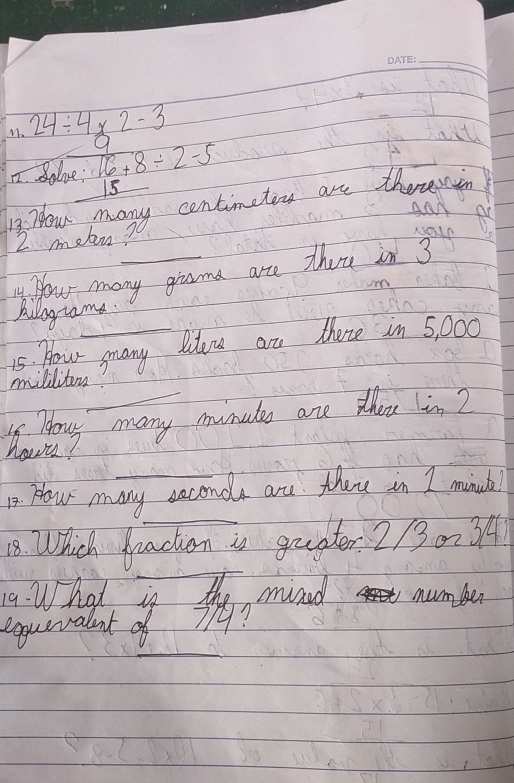 DATE:
11. 24 ÷ 4 x 2 - 3
9
12. Solve: 16 + 8 ÷ 2 - 5
15
13. How many centimeters are there in
2 meters?
14. How many grams are there in 3
kilograms.
15. How many liters are there in 5,000
mililiters?
16. How many minutes are there in 2
hours?
17. How many seconds are there in 1 minute?
18. Which fraction is greater. 2/3 or 3/4?
19. What is the mixed number
equevalent of 7/4?